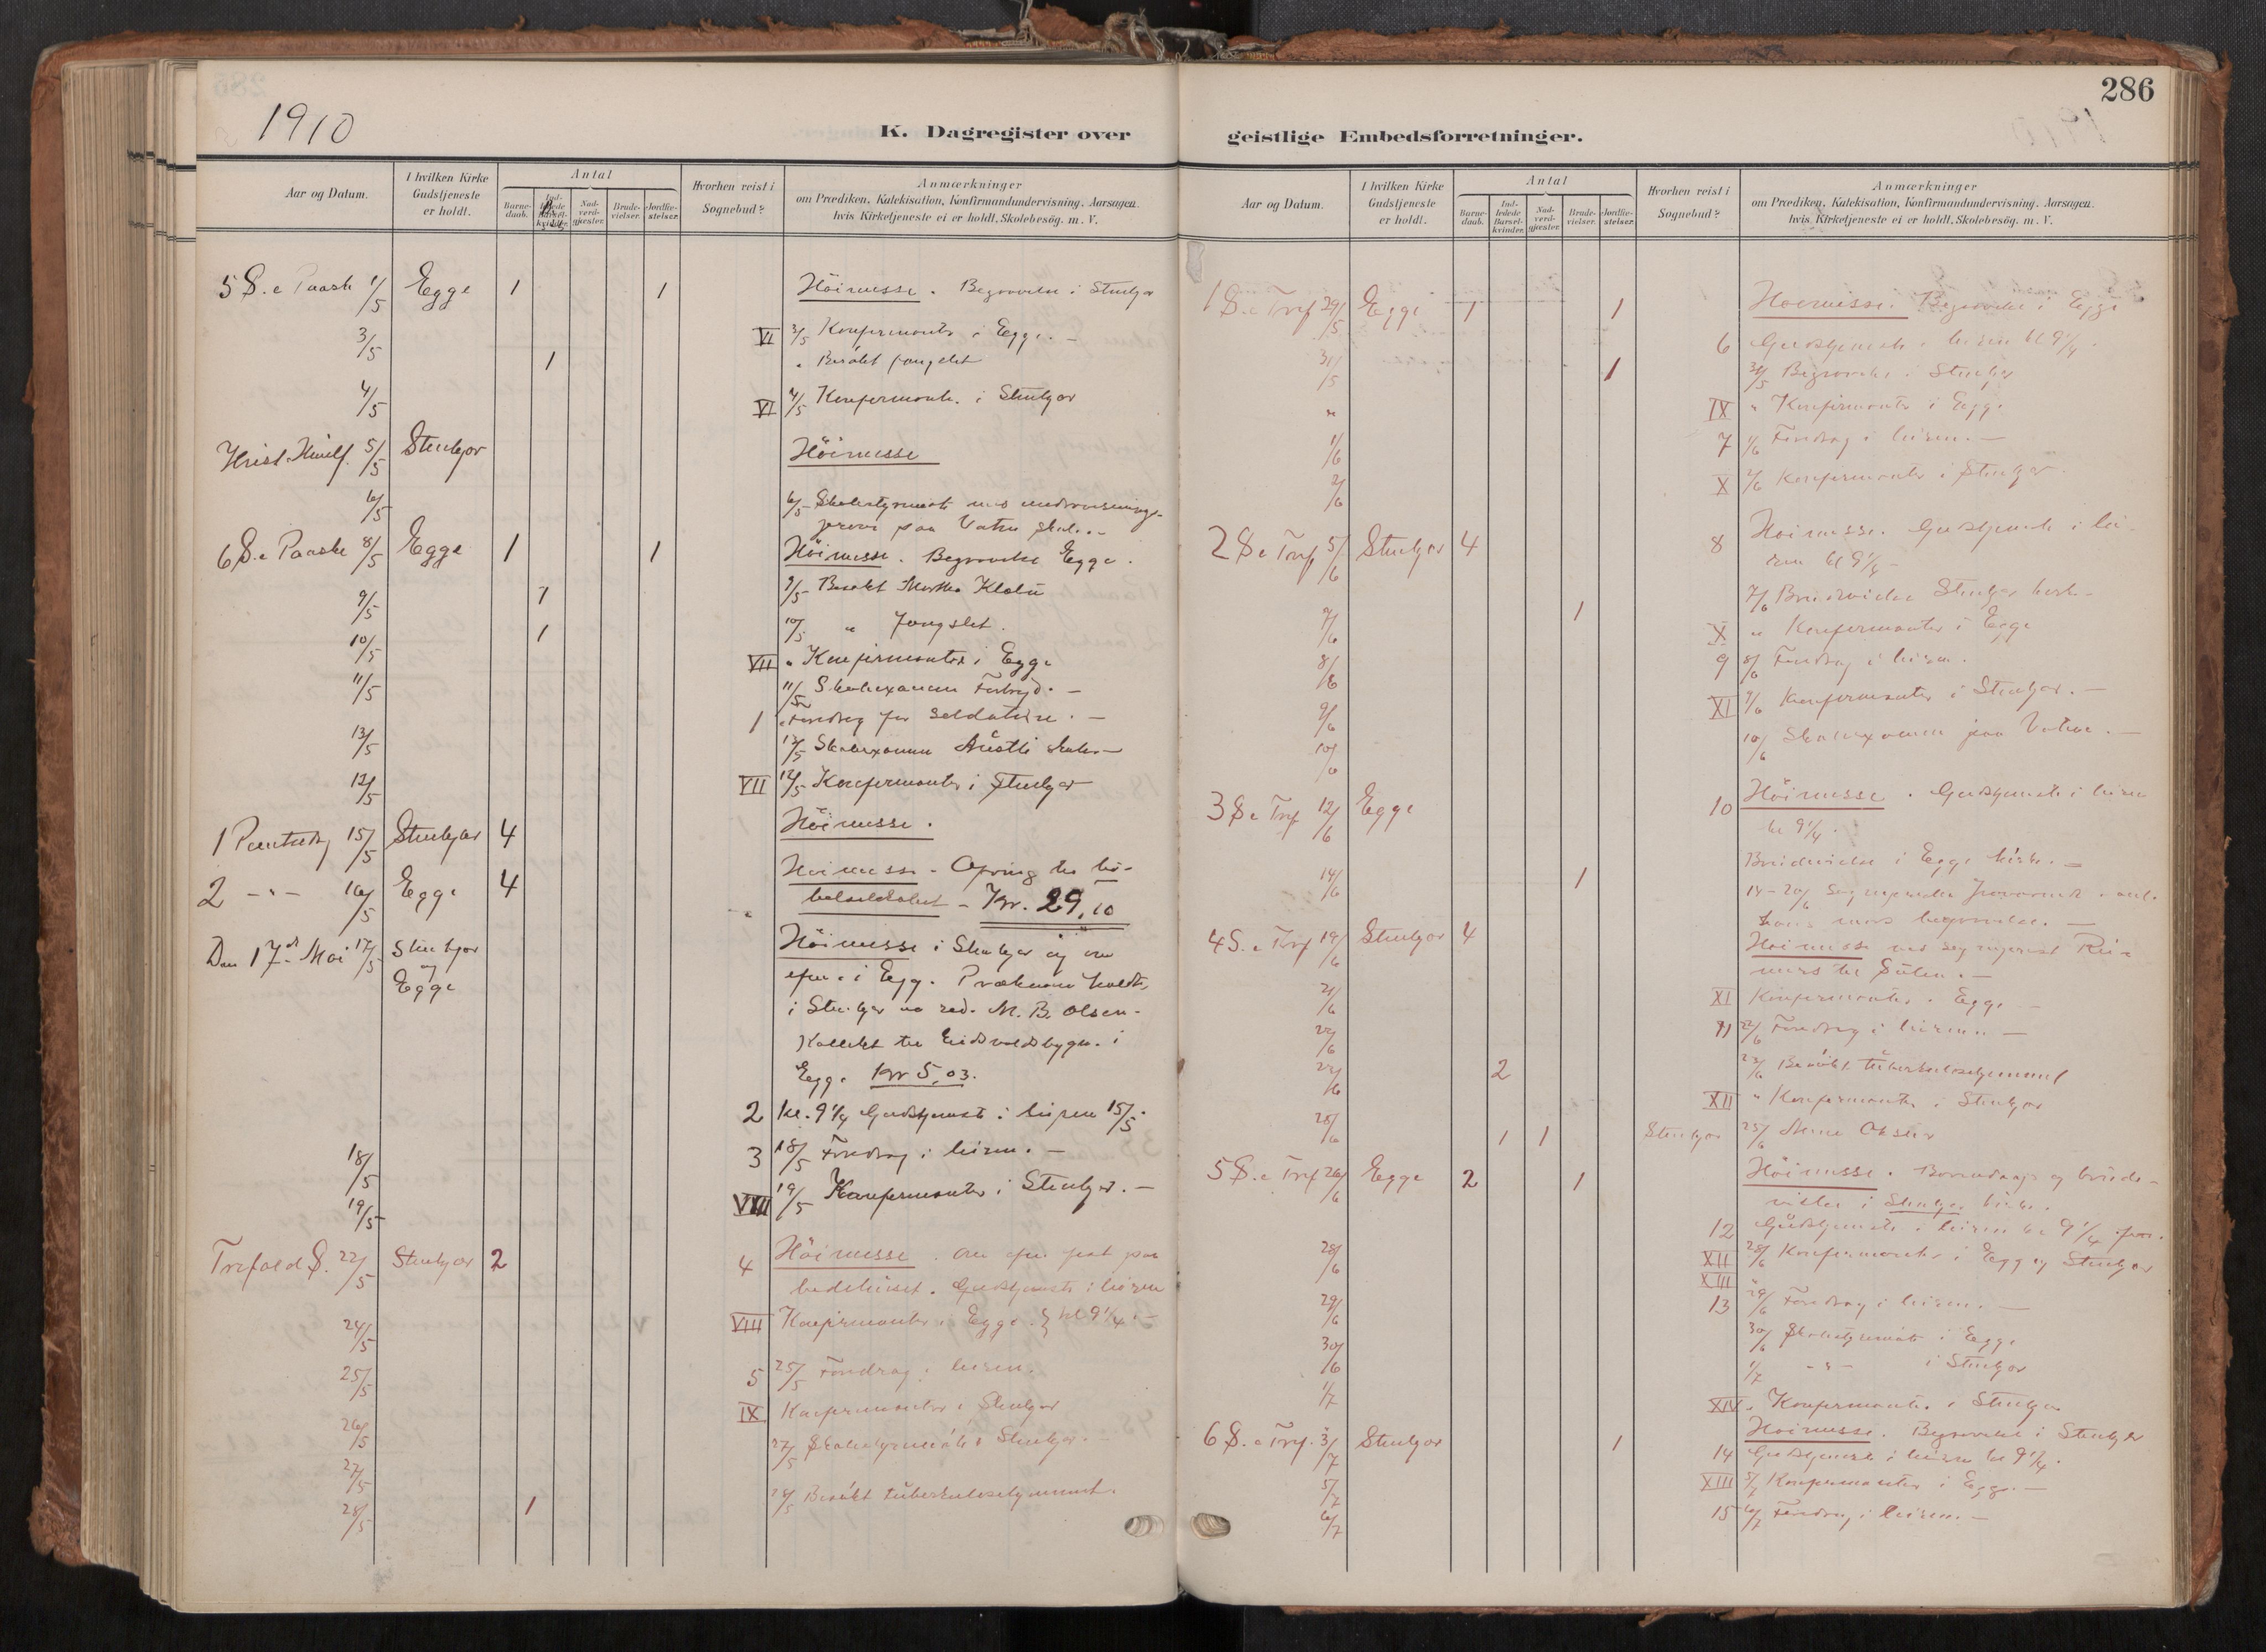 1910
K. Dagregister over
Aar og Datum.
I hvilken Kirke Gudstjeneste er holdt.
Antal
Barne-daab.
Ind-ledede Barsel-kvinder.
Nad-verd-gjæster.
Brude-vielser.
Jordfæ-stelser.
Hvorhen reist i Sognebud?
Anmærkninger
om Prædiken, Katekisation, Konfirmandundervisning, Aarsagen,
hvis Kirketjeneste ei er holdt, Skolebesøg. m. V.
5 S. e Paaske 1/5 Egge 1 1 Höimesse. Begravelse i Stenkjær
3/5 VI 3/5 Konfirmanter i Egge. -
1 " Besökt fængslet
4/5 VI 4/5 Konfirmant. i Stenkjær
Krist. Himlf. 5/5 Stenkjær Höimesse
6/5 6/5 Skolestyremöte med undervisnings-
prøve paa Vatne skole. -
6 S. e Paaske 8/5 Egge 1 1 Höimesse. Begravelse Egge.
9/5 1 9/5 Besökt
10/5 1 10/5 " fængslet.
VII " Konfirmanter i Egge
11/5 11/5 Skoleexamen -
1 " Foredrag for soldaterne. -
13/5 13/5 Skoleexamen skole -
12/5 VII 12/5 Konfirmanter i Stenkjær
1 Pintsedag 15/5 Stenkjær 4 Höimesse.
2 - " - 16/5 Egge 4 Höimesse - Ofring til bi-
belselskabet - Kr. 29,10
Den 17de Mai 17/5 Stenkjær og Egge Höimesse i Stenkjær og om
efm. i Egge. Prækenen holdt
i Stenkjær av red. M. B. Olsen.
Kollekt til Eidsvoldsbygn. i
Egge Kr 5,03.
2 kl. 9 1/4 Gudstjeneste i leiren 15/5.
18/5 3 18/5 Foredrag i leiren. -
19/5 VIII 19/5 Konfirmanter i Stenkjær. -
Trefold S. 22/5 Stenkjær 2 4 Höimesse. Om efm fest paa
bedehuset. Gudstjeneste i leiren
24/5 VIII Konfirmanter i Egge. } kl 9 1/4. -
25/5 5 25/5 Foredrag i leiren.
26/5 IX Konfirmanter i Stenkjær
27/5 27/5 Skolestyremöte i Stenkjær. -
28/5 1 28/5 Besökt tuberkulosehjemmet.
286
geistlige Embedsforretninger.
Aar og Datum.
I hvilken Kirke Gudstjeneste er holdt.
Antal
Barne-daab.
Ind-ledede Barsel-kvinder.
Nad-verd-gjæster.
Brude-vielser.
Jordfæ-stelser.
Hvorhen reist i Sognebud?
Anmærkninger
om Prædiken, Katekisation, Konfirmandundervisning, Aarsagen,
hvis Kirketjeneste ei er holdt, Skolebesøg. m. V.
1 S. e Tref 29/5 Egge 1 1 Höimesse. Begravelse i Egge
6 Gudstjeneste i leiren kl 9 1/4.
31/5 1 31/5 Begravelse i Stenkjær
" IX " Konfirmanter i Egge
1/6 7 1/6 Foredrag i leiren. -
2/6 X 2/6 Konfirmanter i Stenkjær.
2 S e Tref 5/6 Stenkjær 4 8 Höimesse. Gudstjeneste i lei-
ren kl 9 1/4 -
7/6 1 7/6 Brudevielse Stenkjær kirke -
X " Konfirmanter i Egge
8/6 9 8/6 Foredrag i leiren.
9/6 XI 9/6 Konfirmanter i Stenkjær. -
10/6 10/6 Skoleexamen paa Vatne. -
3 S e Tref 12/6 Egge 10 Höimesse. Gudstjeneste i leiren
kl 9 1/4.
14/6 1 Brudevielse i Egge kirke. -
mors begravelse. -
4 S. e Tref 19/6 Stenkjær 4 Höimesse ved
21/6 XI Konfirmanter i Egge -
22/6 11 22/6 Foredrag i leiren. -
23/6 2 23/6 Besökt tuberkulosehjemmet
XII " Konfirmanter i Stenkjær
25/6 1 1 Stenkjær 25/6
5 S. e Tref 26/6 Egge 2 1 Höimesse. Barnedaap og brude-
vielse i Stenkjær kirke.
12 Gudstjeneste i leiren kl 9 1/4 fm.
28/6 XII XIII 28/6 Konfirmanter i Egge og Stenkjær
29/6 13 29/6 Foredrag i leiren. -
30/6 30/6 Skolestyremöte i Egge
1/7 1/7 - " - i Stenkjær
XIV " Konfirmanter i Stenkjær
6 S. e Tref. 3/7 Stenkjær 1 Höimesse. Begravelse i Stenkjær
14 Gudstjeneste i leiren kl 9 1/4.
5/7 XIII 5/7 Konfirmanter i Egge. -
6/7 15 6/7 Foredrag i leiren. -